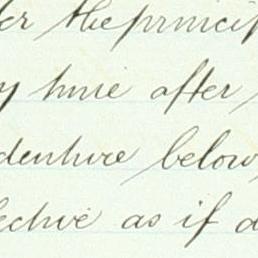 er the princip
y time after
denture below
ective as if d